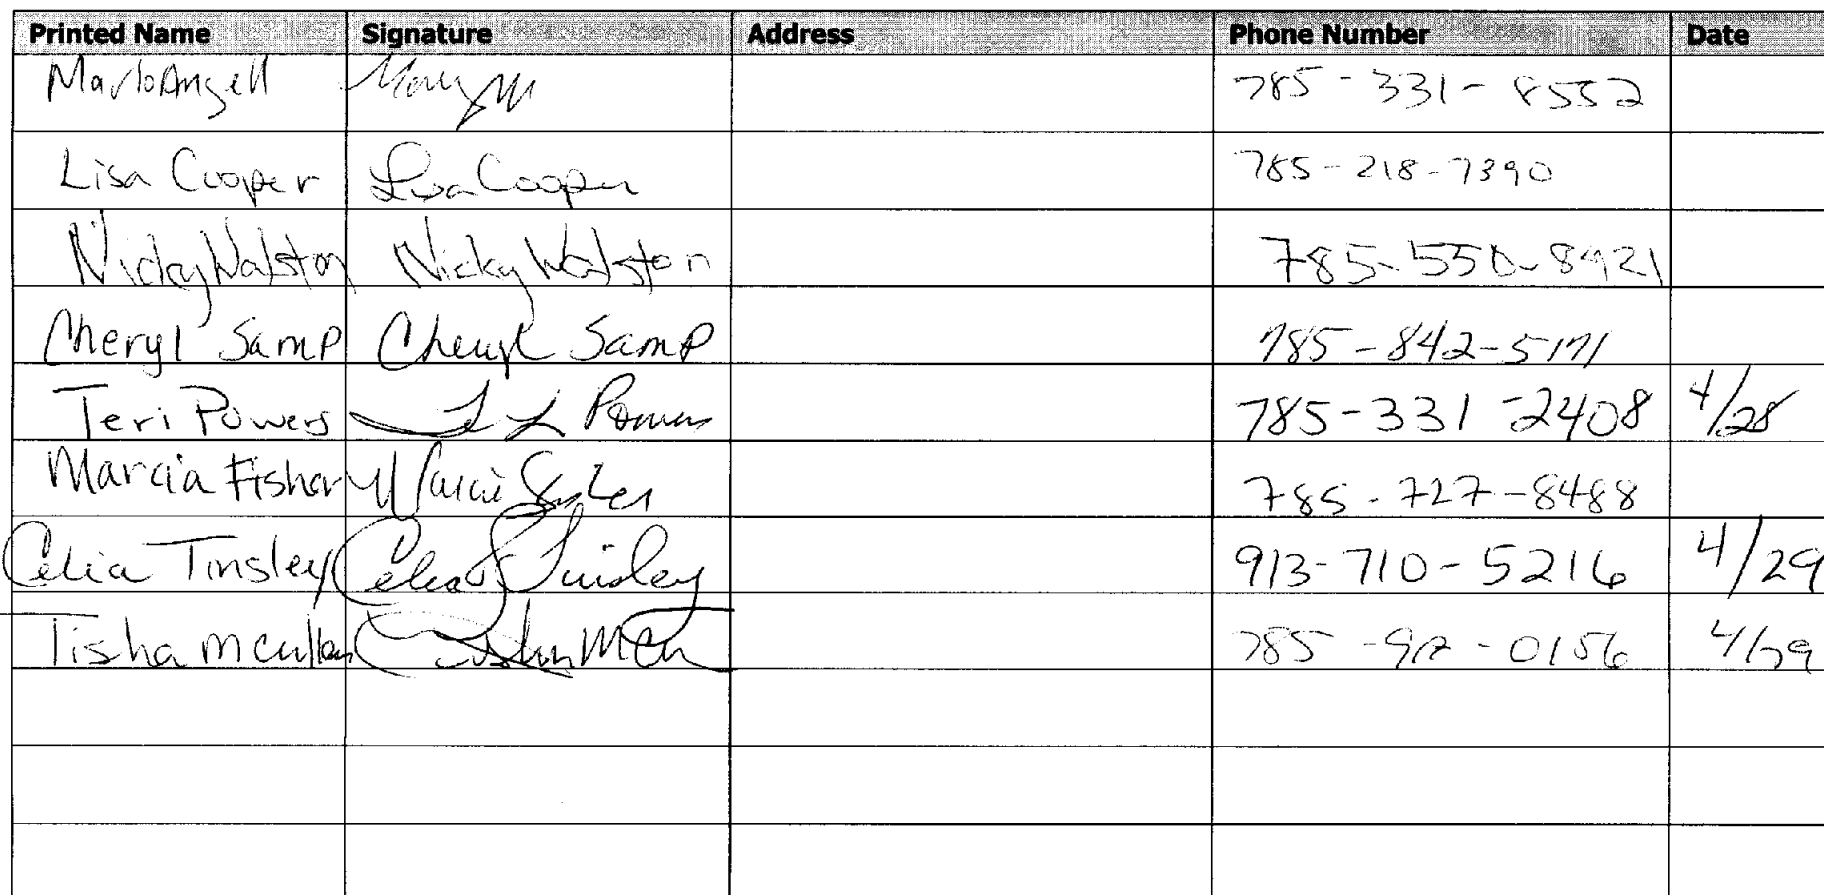 Printed Name Signature Address Phone Number Date
Marlo Angell 785-331-8552
Lisa Cooper Lisa Cooper 785-218-7390
Nicky Walston Nicky Walston 785-550-8921
Cheryl Samp Cheryl Samp 785-842-5171
Teri Powers T L Powers 785-331-2408 4/28
Marcia Fisher Marcia Fisher 785-727-8488
Celia Tinsley Celia Tinsley 913-710-5216 4/29
Tisha 4/29